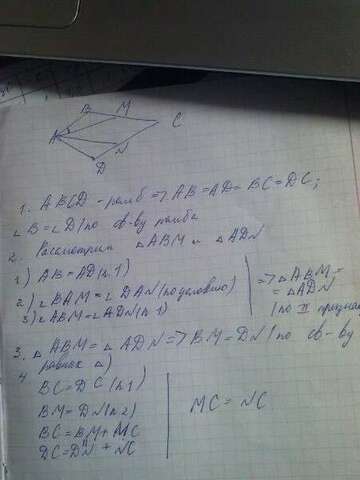 B M
A C
N
D
1. ABCD - ромб => AB = AD = BC = DC;
∠B = ∠D (по св-ву ромба
2. Рассмотрим △ABM и △ADN
1) AB = AD (п.1)
2) ∠BAM = ∠DAN (по условию)
3) ∠ABM = ∠ADN (п.1)
=> △ABM =
= △ADN
(по II признак
3. △ABM = △ADN => BM = DN (по св-ву
равных △)
4
BC = DC (п.1)
BM = DN (п.2)
BC = BM + MC
DC = DN + NC
MC = NC